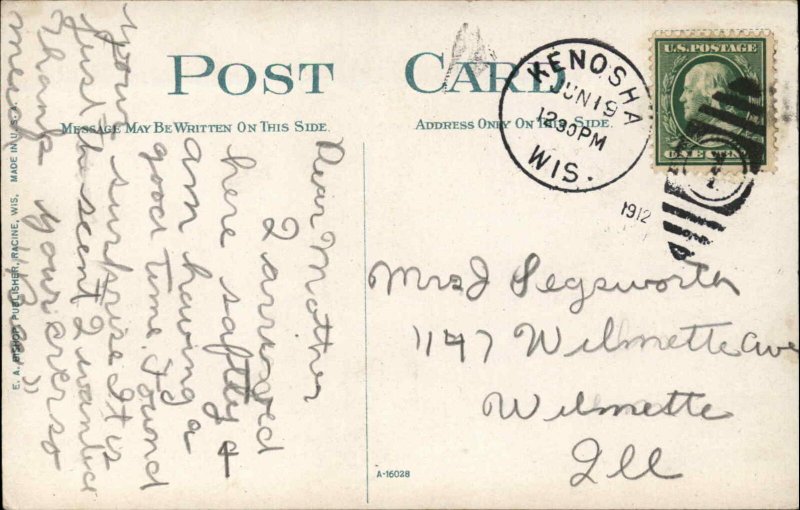 POST CARD
MESSAGE MAY BE WRITTEN ON THIS SIDE.
ADDRESS ONLY ON THIS SIDE.
KENOSHA
JUN 19
12 30 PM
WIS.
1912
U.S. POSTAGE
ONE CENT
Dear Mother
I arrived
here saftly &
am having a
good time. Found
your surprise. It is
just the scent I wanted
Thank you ever so
much
Mrs J Pegsworth
1147 Wilmette Ave
Wilmette
Ill
A-16028
E. A. BISHOP, PUBLISHER, RACINE, WIS. MADE IN U.S.A.